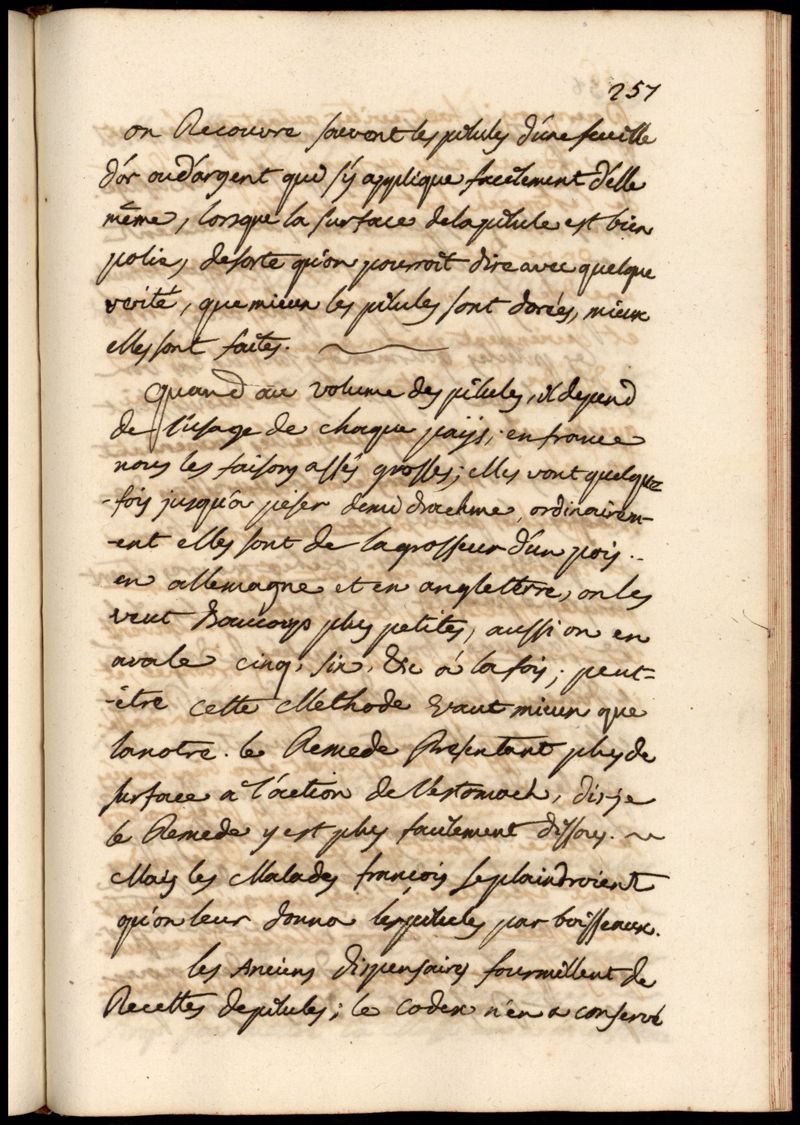 257
on Recouvre souvent les pilules d'une feuille
d'or ou d'argent qui s'y applique facilement d'elle
même, lorsque la surface de la pilule est bien
polie, desorte qu'on pourroit dire avec quelque
verité, que mieux les pilules sont dorées, mieux
elles sont faites.
Quand au volume des pilules, il depend
de l'usage de chaque païs; en france
nous les faisons assés grosses; elles vont quelque-
-fois jusqu'a peser demi drachme, ordinairem-
-ent elles sont de la grosseur d'un pois..
en allemagne et en anglettre, on les
veut Beaucoup plus petites, aussi on en
avale cinq, six, &c à la fois; peut-
-être cette Methode vaut mieux que
la notre. le Remede Presentant plus de
surface a l'action de l'estomach, dis-je
le Remede y est plus facilement dissous.
Mais les Malades françois se plaindroient
qu'on leur donna les pilules par boisseaux.
les Anciens dispensaires fourmillent de
Recettes de pilules; le codex n'en a conservé